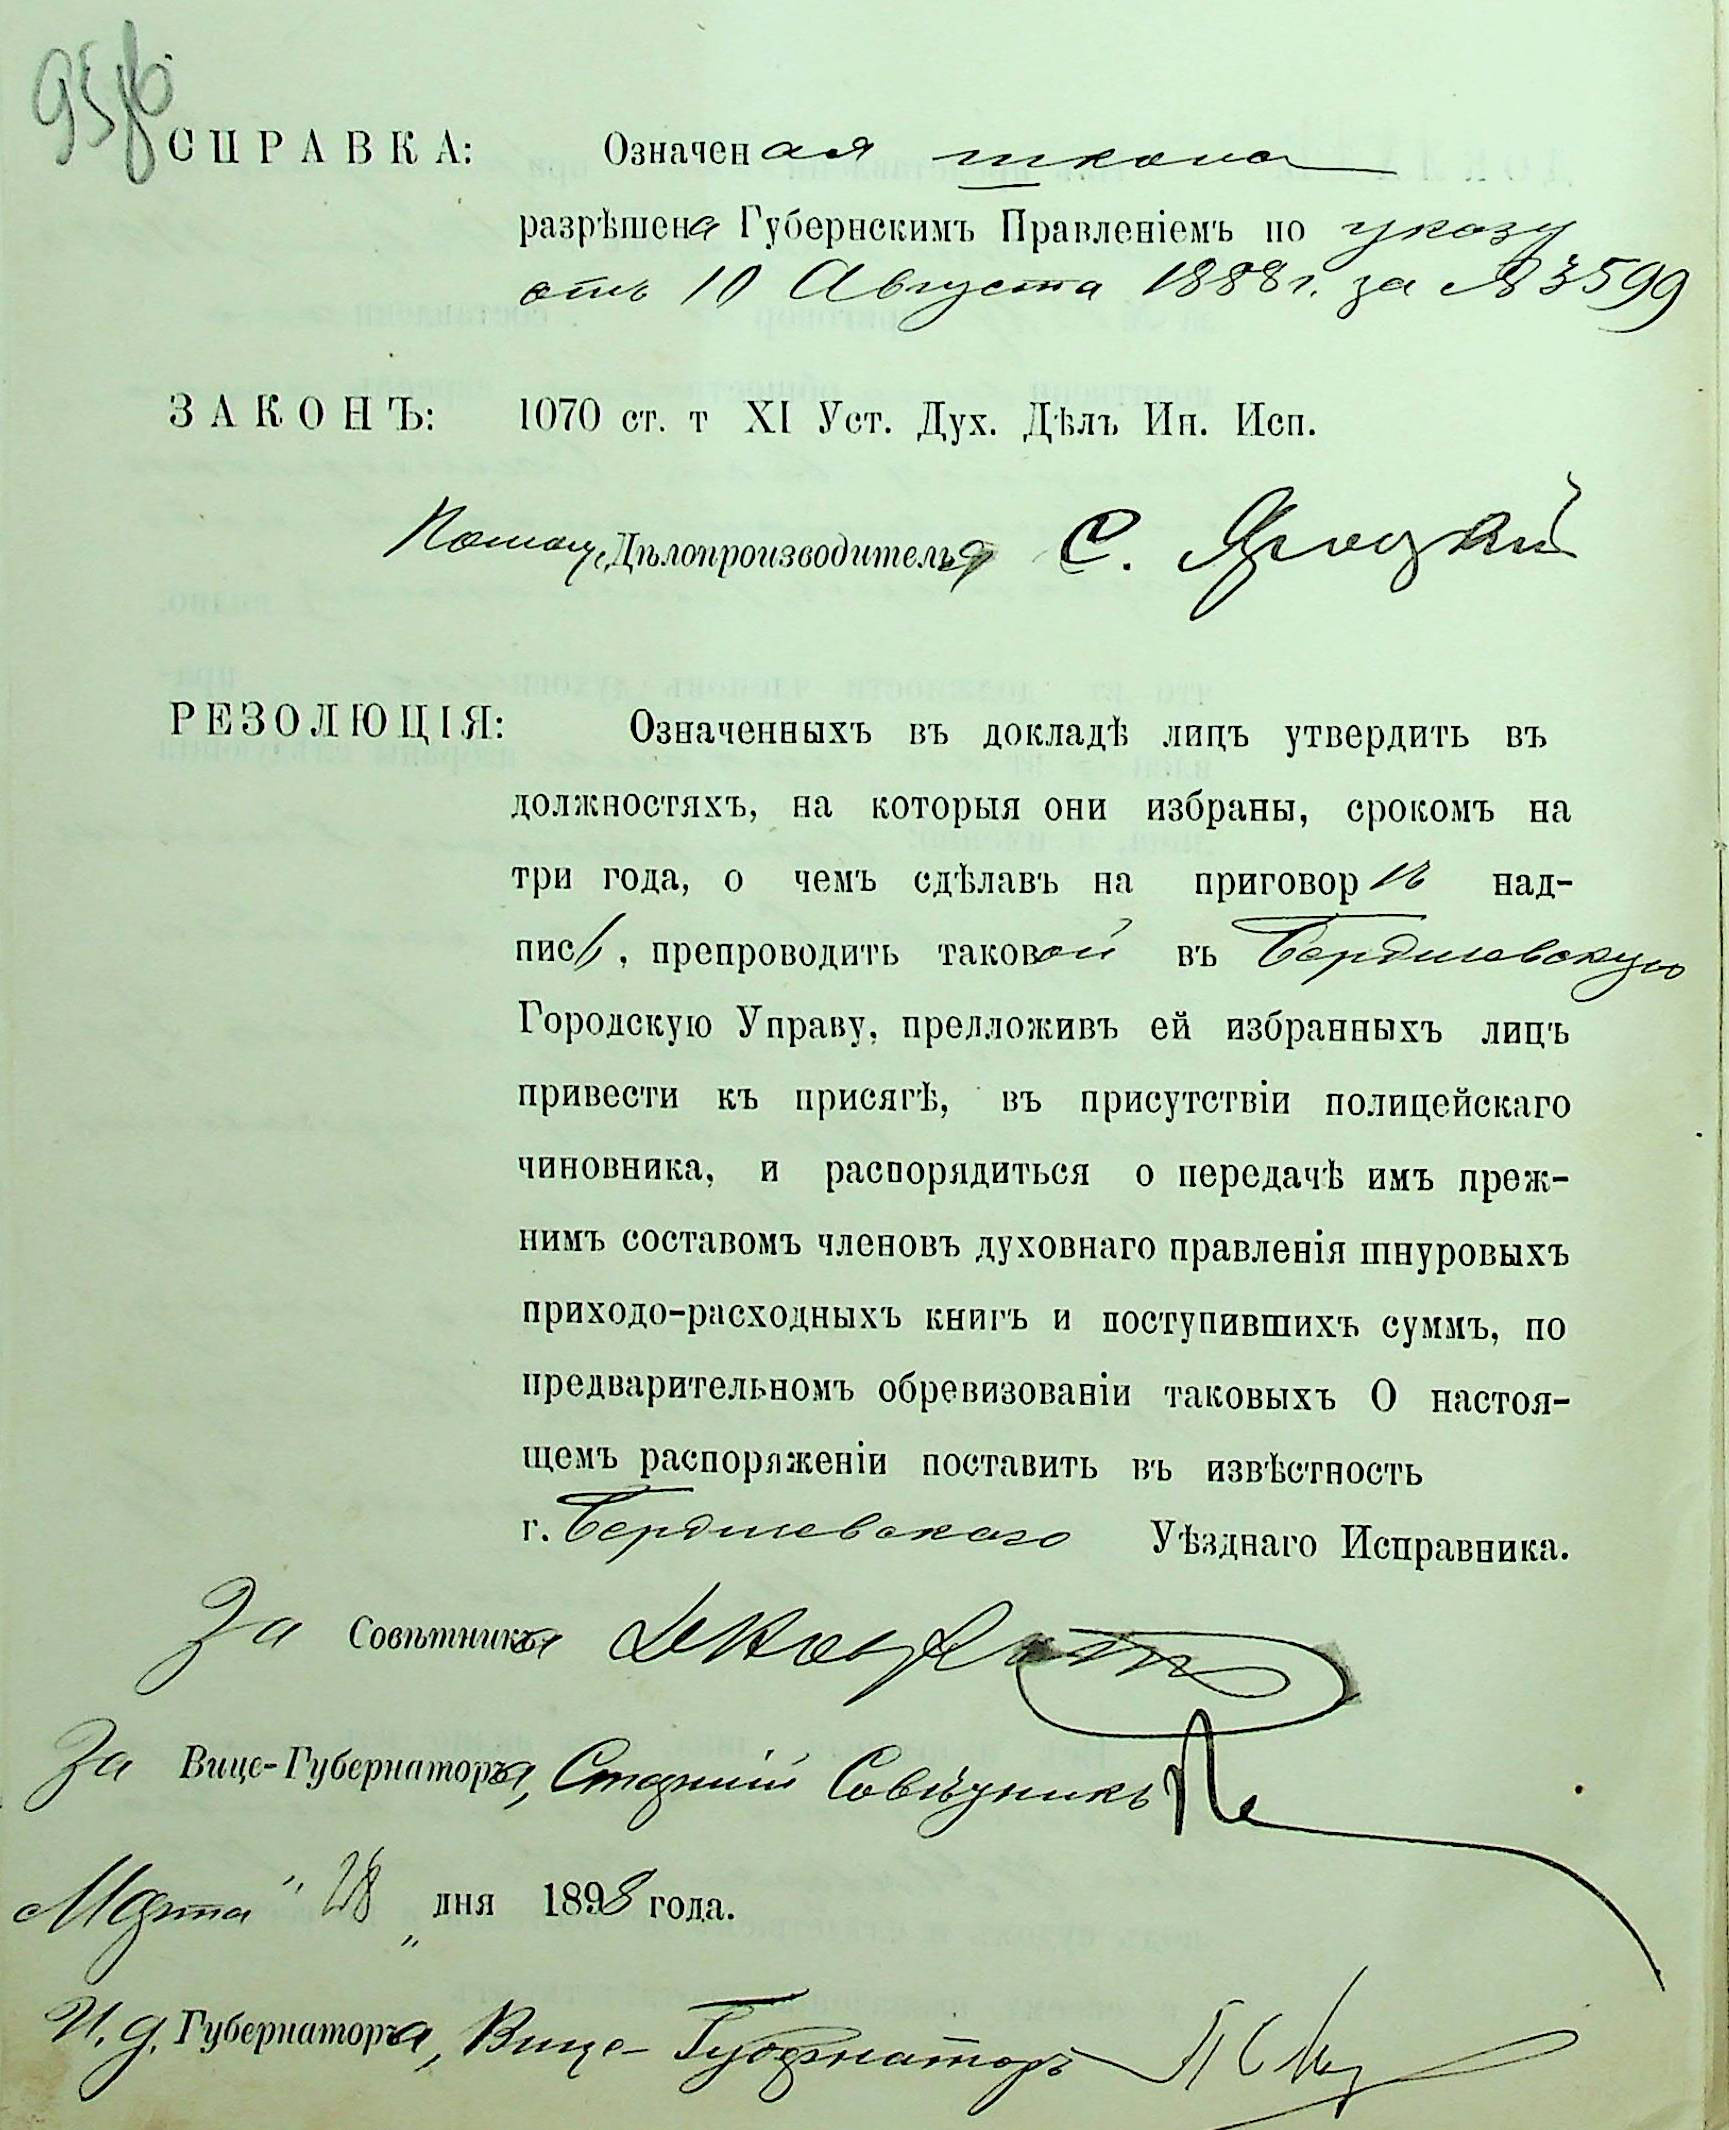 95 об
СПРАВКА: Означенная школа
разрѣшена Губернскимъ Правленіемъ по указу
отъ 10 Августа 1888 г. за № 3599
ЗАКОНЪ: 1070 ст. т XI Уст. Дух. Дѣлъ Ин. Исп.
Помощ. Дѣлопроизводителя С.
РЕЗОЛЮЦІЯ: Означенныхъ въ докладѣ лицъ утвердить въ
должностяхъ, на которыя они избраны, срокомъ на
три года, о чемъ сдѣлавъ на приговорѣ над-
пись, препроводить таковой въ Бердичевскую
Городскую Управу, предложивъ ей избранныхъ лицъ
привести къ присягѣ, въ присутствіи полицейскаго
чиновника, и распорядиться о передачѣ имъ преж-
нимъ составомъ членовъ духовнаго правленія шнуровыхъ
приходо-расходныхъ книгъ и поступившихъ суммъ, по
предварительномъ обревизованіи таковыхъ О настоя-
щемъ распоряженіи поставить въ извѣстность
г. Бердичевскаго Уѣзднаго Исправника.
За Совѣтника
За Вице-Губернатора, Старшій Совѣтникъ
Марта „28„ дня 1898 года.
И. д. Губернатора, Вице-Губернаторъ